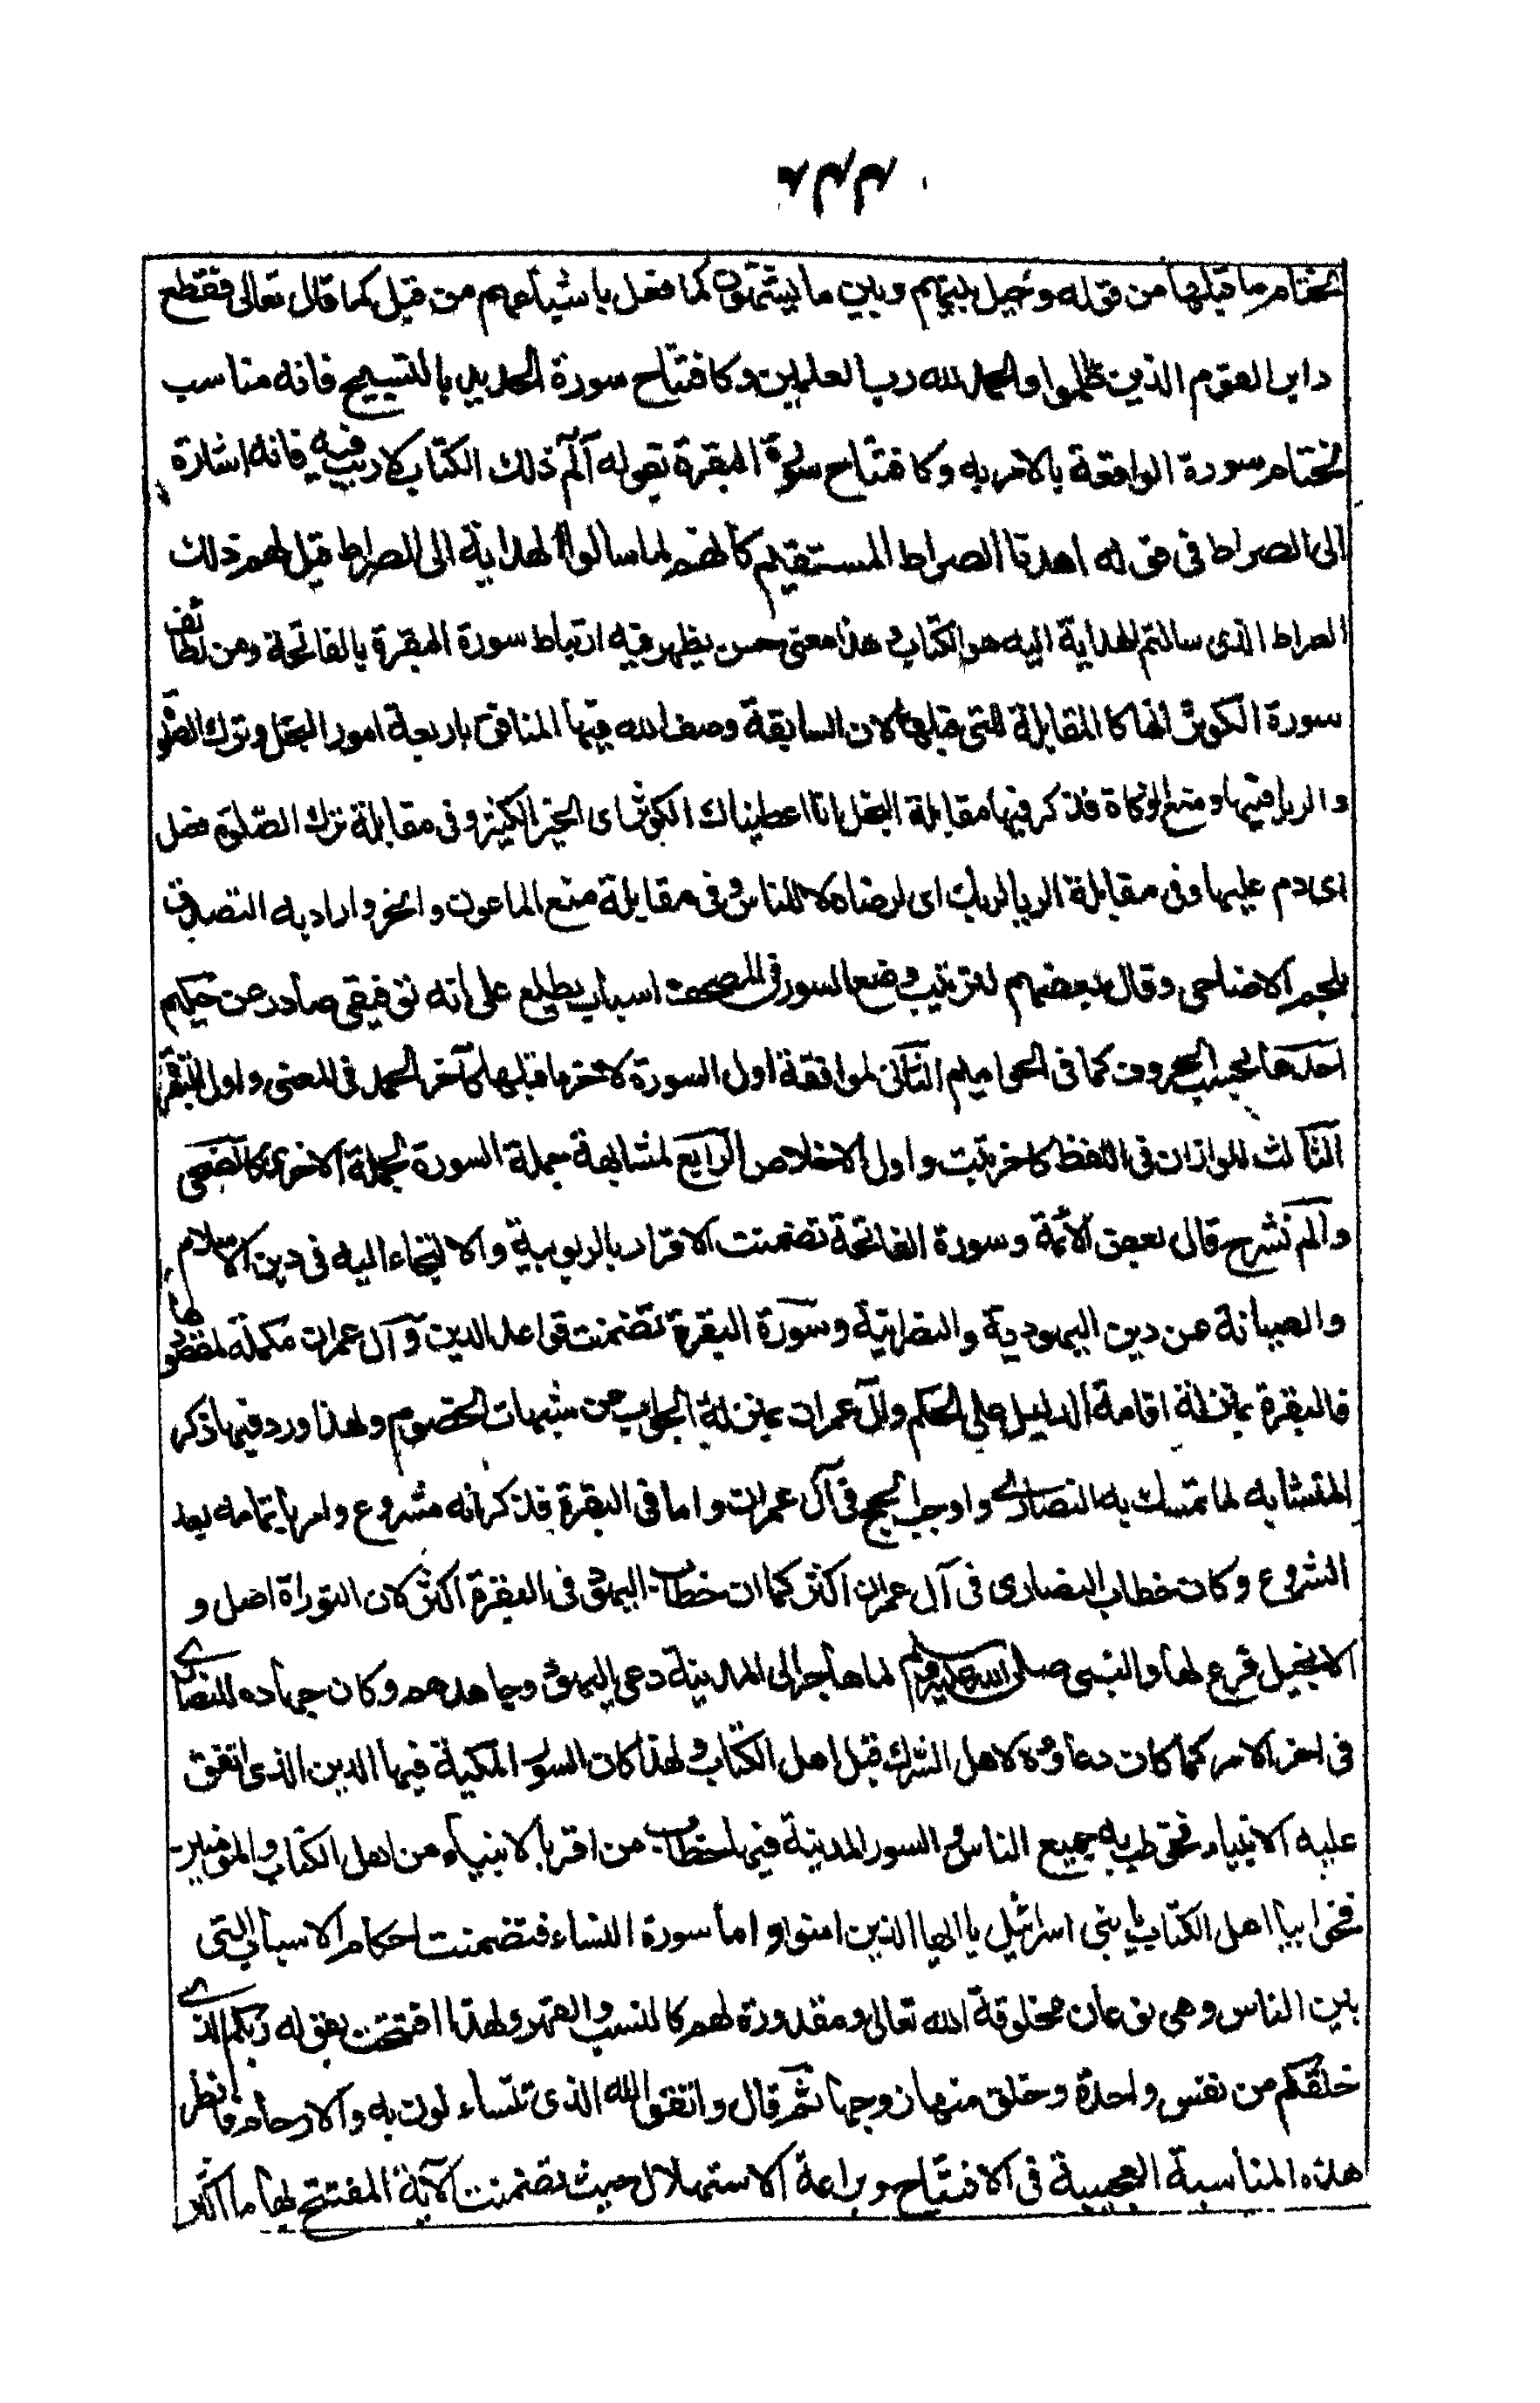 لختام ما قبلها من قوله وحيل بينهم وبين ما يشتهون كما فعل باشياعهم من قبل كما قال تعالى فقطع
دابر القوم الذين ظلموا والحمد لله رب العلمين وكافتتاح سورة الحديد بالتسبيح فانه مناسب
لختام سورة الواقعة بالامر به وكافتتاح سورة البقرة بقوله آلم ذلك الكتاب لا ريب فيه فانه اشارة
الى الصراط فى قوله اهدنا الصراط المستقيم كانهم لما سالوا الهداية الى الصراط قيل لهم ذلك
الصراط الذى سالتم الهداية اليه هو الكتاب وهذا معنى حسن يظهر فيه ارتباط سورة البقرة بالفاتحة ومن لطائف
سورة الكوثر انها كالمقابلة للتى قبلها لان السابقة وصف الله فيها المنافق باربعة امور البخل وترك الصلوة
والريا فيها ومنع الزكاة فذكر فيها مقابلة البخل انا اعطيناك الكوثر اى الخير الكثير وفى مقابلة ترك الصلوة فصل
اى دم عليها وفى مقابلة الريا لربك اى لرضاه لا للناس وفى مقابلة منع الماعون وانحر واراد به التصدق
بلحم الاضاحى وقال بعضهم لترتيب وضع السور فى المصحف اسباب يطلع على انه توفيقى صادر عن حكيم
احدها بحسب الحروف كما فى الحواميم الثانى لموافقة اول السورة لاخر ما قبلها كآخر الحمد فى المعنى واول البقرة
الثالث للوازان فى اللفظ كاخر تبت واول الاخلاص الرابع لمشابهة جملة السورة لجملة الاخرى كالضحى
وآلم نشرح قال بعض الائمة وسورة الفاتحة تضمنت الاقرار بالربوبية والالتجاء اليه فى دين الاسلام
والصيانة عن دين اليهودية والنصرانية وسورة البقرة تضمنت قواعد الدين وآل عمران مكملة لمقصودها
فالبقرة بمنزلة اقامة الدليل على الحكم وآل عمران بمنزلة الجواب عن شبهات الخصوم ولهذا ورد فيها ذكر
المتشابه لما تمسك به النصارى واوجب الحج فى آل عمران واما فى البقرة فذكر انه مشروع وامر باتمامه بعد
الشروع وكان خطاب النصارى فى آل عمران اكثر كما ان خطاب اليهود فى البقرة اكثر كان التوراة اصل و
الانجيل فرع لها والنبى صلى الله عليه وسلم لما هاجر الى المدينة دعى اليهود وجاهدهم وكان جهاده للنصارى
فى اخر الامر كما كان دعاؤه لاهل الشرك قبل اهل الكتاب ولهذا كان السور المكية فيها الدين الذى اتفق
عليه الانبياء فخوطب به جميع الناس والسور المدنية فيها خطاب من اقر بالانبياء من اهل الكتاب والمومنين
فخوا بيا اهل الكتاب يا بنى اسرائيل يا ايها الذين امنوا واما سورة النساء فتضمنت احكام الاسباب التى
بين الناس وهى نوعان مخلوقة الله تعالى ومقدورة لهم كالنسب والصهر ولهذا افتتحت بقوله ربكم الذى
خلقكم من نفس واحدة وخلق منها زوجها ثم قال واتقوا الله الذى تتساءلون به والارحام فانظر
هذه المناسبة العجيبة فى الافتتاح وبراعة الاستهلال حيث تضمنت الآية المفتتح بها ما اكثر